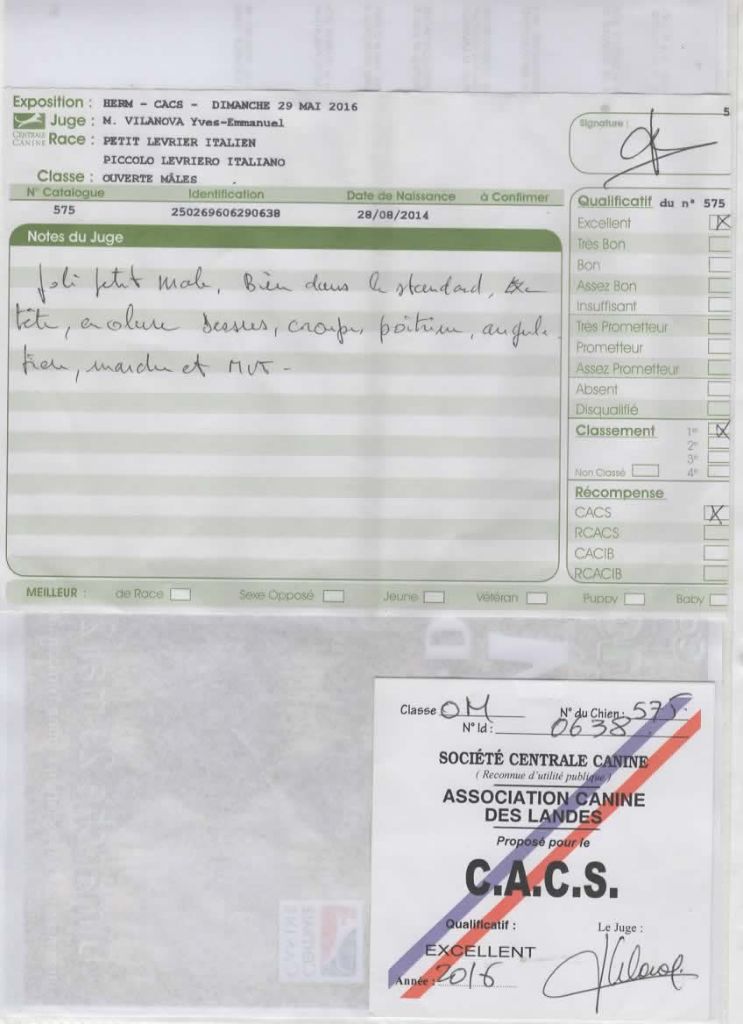 Exposition : HERM - CACS - DIMANCHE 29 MAI 2016
Juge : M. VILANOVA Yves-Emmanuel
CENTRALE CANINE
Race : PETIT LEVRIER ITALIEN
PICCOLO LEVRIERO ITALIANO
Classe : OUVERTE MÂLES
Signature :
5
N° Catalogue Identification Date de Naissance à Confirmer
575 250269606290638 28/08/2014
Notes du Juge
Joli petit male, Bien dans le standard,
tête, encolure dessus, croupe, poitrine, angula
tion, marche et MVT -
Qualificatif du n° 575
Excellent X
Très Bon
Bon
Assez Bon
Insuffisant
Très Prometteur
Prometteur
Assez Prometteur
Absent
Disqualifié
Classement 1er X
2e
3e
Non Classé 4e
Récompense
CACS X
RCACS
CACIB
RCACIB
MEILLEUR : de Race Sexe Opposé Jeune Vétéran Puppy Baby
Classe OM N° du Chien : 575
N° Id : 0638
SOCIÉTÉ CENTRALE CANINE
( Reconnue d'utilité publique )
ASSOCIATION CANINE
DES LANDES
Proposé pour le
C.A.C.S.
Qualificatif : Le Juge :
EXCELLENT
Année : 2016